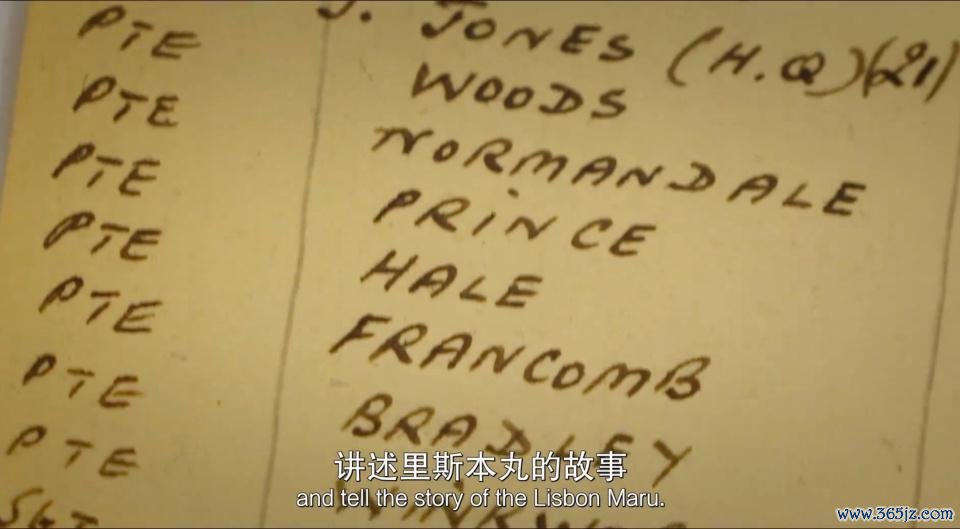 PTE J. JONES (H.Q)(21)
PTE WOODS
PTE NORMANDALE
PTE PRINCE
PTE HALE
PTE FRANCOMB
PTE BRADLEY
讲述里斯本丸的故事
and tell the story of the Lisbon Maru.
www.365jz.com